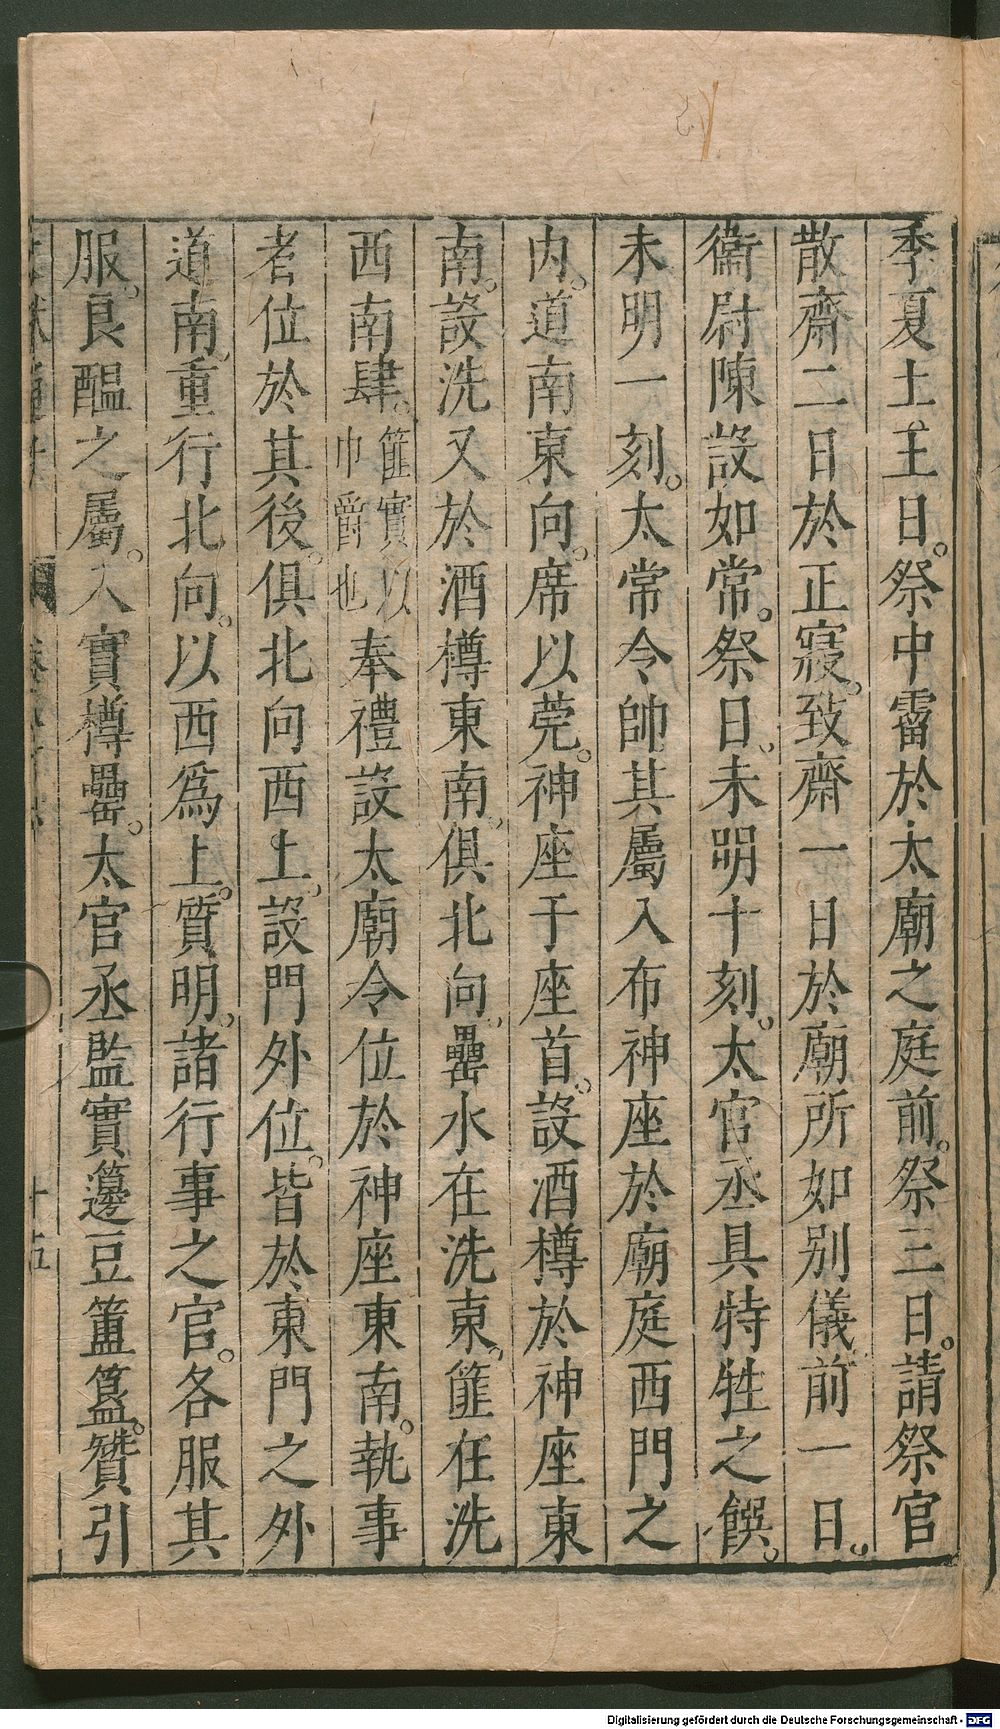 季夏土王日。祭中霤於太廟之庭前。祭三日。請祭官
散齋二日於正寢。致齋一日於廟所如別儀前一日。
衞尉陳設如常。祭日。未明十刻。太官丞具特牲之饌。
未明一刻。太常令帥其屬入布神座於廟庭西門之
內。道南東向。席以莞。神座于座首。設酒樽於神座東
南。設洗又於酒樽東南。俱北向。罍水在洗東。篚在洗
西南肆。篚實以巾爵也奉禮設太廟令位於神座東南。執事
者位於其後。俱北向西上。設門外位。皆於東門之外
道南。重行北向。以西爲上。質明。諸行事之官。各服其
服。良醞之屬。入實樽罍。太官丞監實籩豆簠簋。贊引
十五
Digitalisierung gefördert durch die Deutsche Forschungsgemeinschaft - DFG